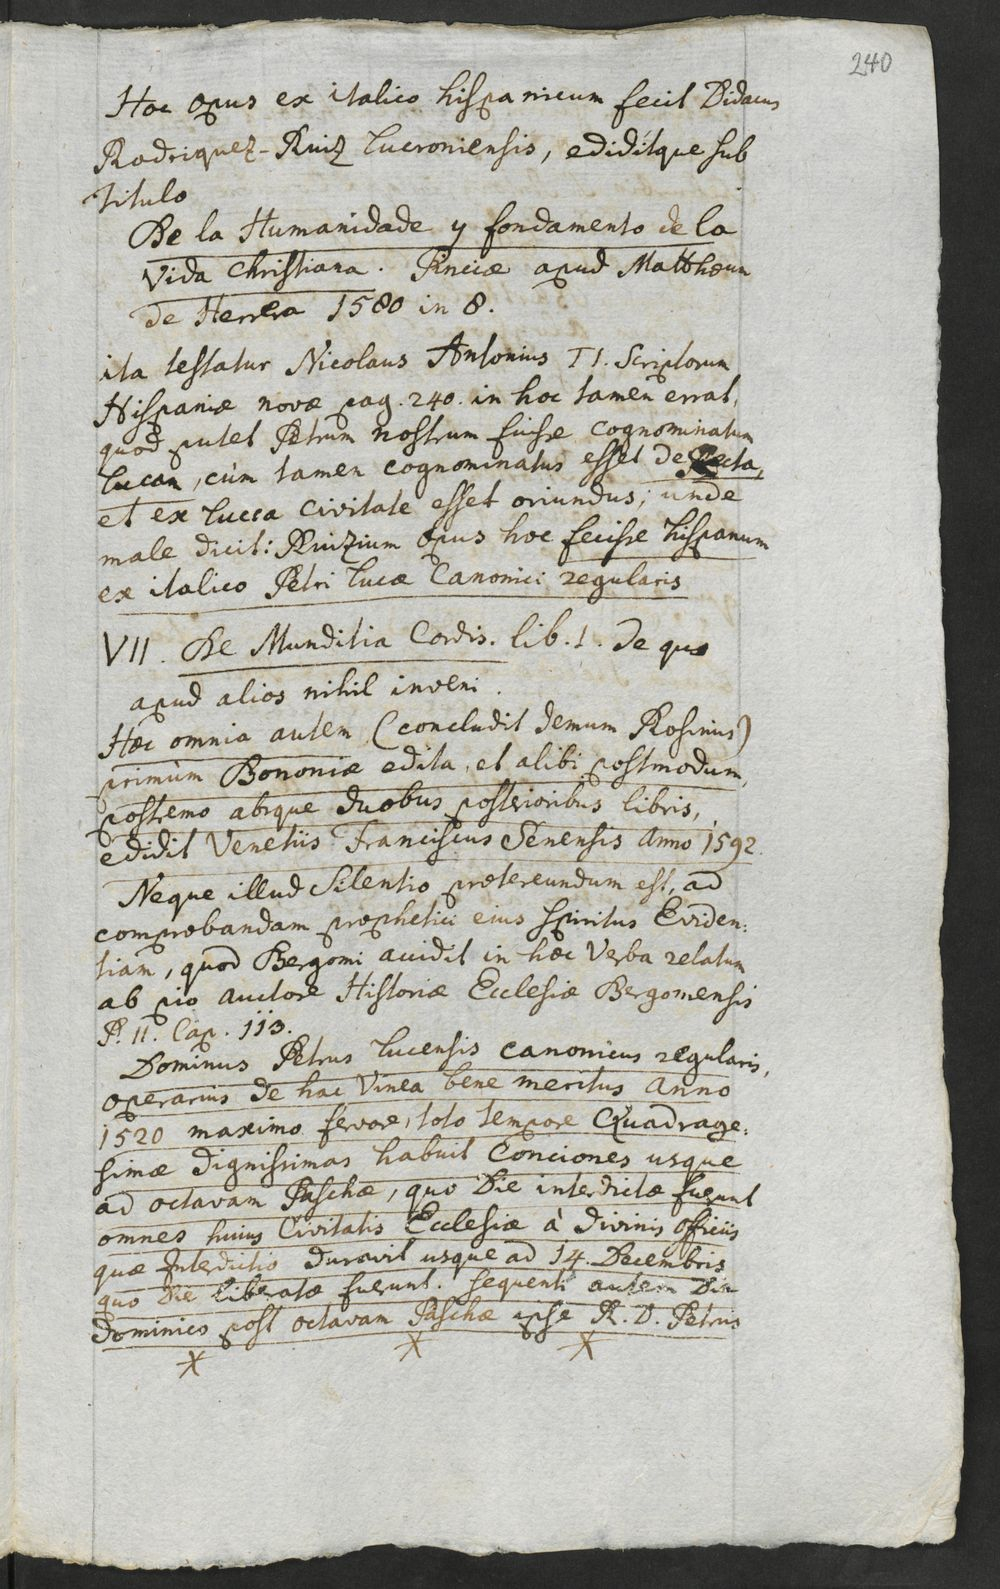 240
Hoc opus ex italico hispanicum fecit Didacus
Rodriquez-Ruiz Lucroniensis, ediditque sub
titulo
De la Humanidade y fondamento de la
Vida Christiana. Pinciæ apud Matthæum
de Herrera 1580 in 8.
ita testatur Nicolaus Antonius T1. Scriptorum
Hispaniæ novæ pag. 240. in hoc tamen errat,
quod putet Petrum nostrum fuisse cognominatum
Lucam, cùm tamen cognominatus esset de
et ex Lucca Civitate esset oriundus; unde
male dicit: Ruizium opus hoc fecisse hispanum
ex italico Petri Lucæ Canonici regularis
VII. De Munditia Cordis. lib. 1. de quo
apud alios nihil inveni.
Hæc omnia autem (concludit demum Rosinius)
primùm Bononiæ edita, et alibi postmodum,
postremo absque duobus posterioribus libris,
edidit Venetiis Franciscus Senensis Anno 1592.
Neque illud Silentio prætereundum est, ad
comprobandam prophetici eius spiritus Eviden:
tiam, quod Bergomi accidit in hæc Verba relatum
ab pio auctore Historiæ Ecclesiæ Bergomensis
P. II. Cap. 113.
Dominus Petrus Lucensis canonicus regularis,
operarius de hac Vinea bene meritus Anno
1520 maximo fervore, toto tempore Quadrage:
simæ dignissimas habuit Conciones usque
ad octavam Paschæ, quo Die interdictæ fuerunt
omnes huius Civitatis Ecclesiæ à divinis officiis
quæ Interdictio duravit usque ad 14. Decembris
quo Die liberatæ fuerunt. sequenti autem Die
Dominico post octavam Paschæ ipse R. D. Petrus
* * *